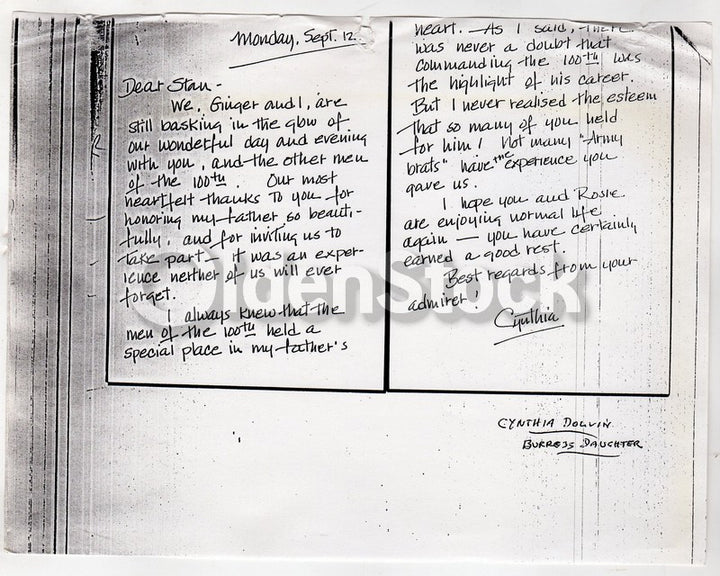 Monday, Sept. 12
Dear Stan -
We, Ginger and I, are
still basking in the glow of
our wonderful day and evening
with you, and the other men
of the 100th. Our most
heartfelt thanks to you for
honoring my father so beauti-
fully, and for inviting us to
take part - it was an exper-
ience neither of us will ever
forget.
I always knew that the
men of the 100th held a
special place in my father's
heart. As I said, there
was never a doubt that
commanding the 100th was
the highlight of his career.
But I never realised the esteem
that so many of you held
for him! Not many "Army
brats" have the experience you
gave us.
I hope you and Rosie
are enjoying normal life
again — you have certainly
earned a good rest.
Best regards from your
admirer!
Cynthia
CYNTHIA
BURRESS DAUGHTER
OldenStock